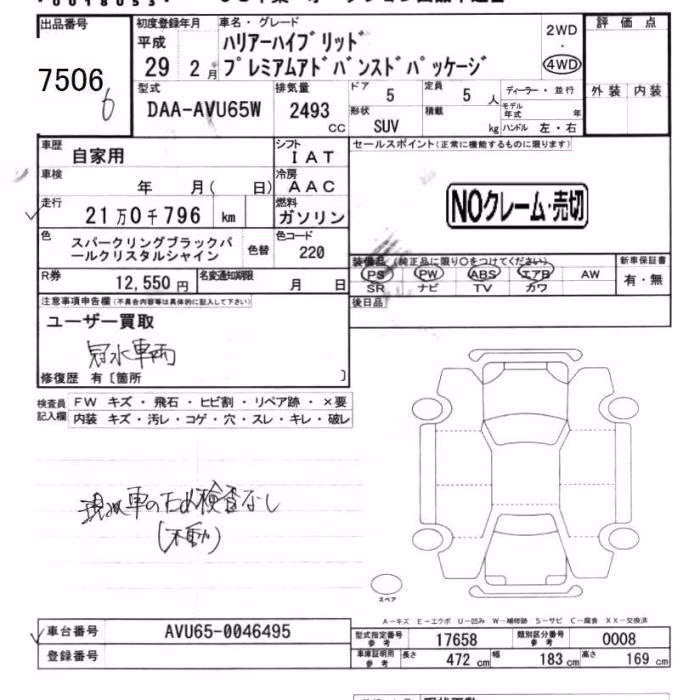 出品番号
7506
6
初度登録年月
平成
29 2月
車名・グレード
ハリアーハイブリッド
プレミアムアドバンスドパッケージ
2WD
・
4WD
評価点
外装 内装
型式
DAA-AVU65W
排気量
2493
CC
ドア
5
定員
5 人
ディーラー・並行
モデル年式 年
形状
SUV
積載
kg
ハンドル 左・右
車歴
自家用
シフト
IAT
車検
年 月( 日)
冷房
AAC
走行
21万0千796 km
燃料
ガソリン
色
スパークリングブラックパ
ールクリスタルシャイン
色替
色コード
220
R券
12,550円
名変通知期限
月 日
セールスポイント(正常に機能するものに限ります)
NOクレーム・売切
装備品 (純正品に限り○をつけてください)
PS PW ABS エアB AW
SR ナビ TV カワ
新車保証書
有・無
後日品
注意事項申告欄(不具合内容等は具体的に記入して下さい)
ユーザー買取
冠水車両
修復歴 有〔箇所 〕
検査員
記入欄
FW キズ・飛石・ヒビ割・リペア跡・×要
内装 キズ・汚レ・コゲ・穴・スレ・キレ・破レ
現状車のため検査なし
(不動)
スペア
A-キズ E-エクボ U-凹み W-補修跡 S-サビ C-腐食 XX-交換済
車台番号
AVU65-0046495
登録番号
型式指定番号
参考
17658
類別区分番号
参考
0008
車庫証明用
参考
長さ
472 cm
幅
183 cm
高さ
169 cm